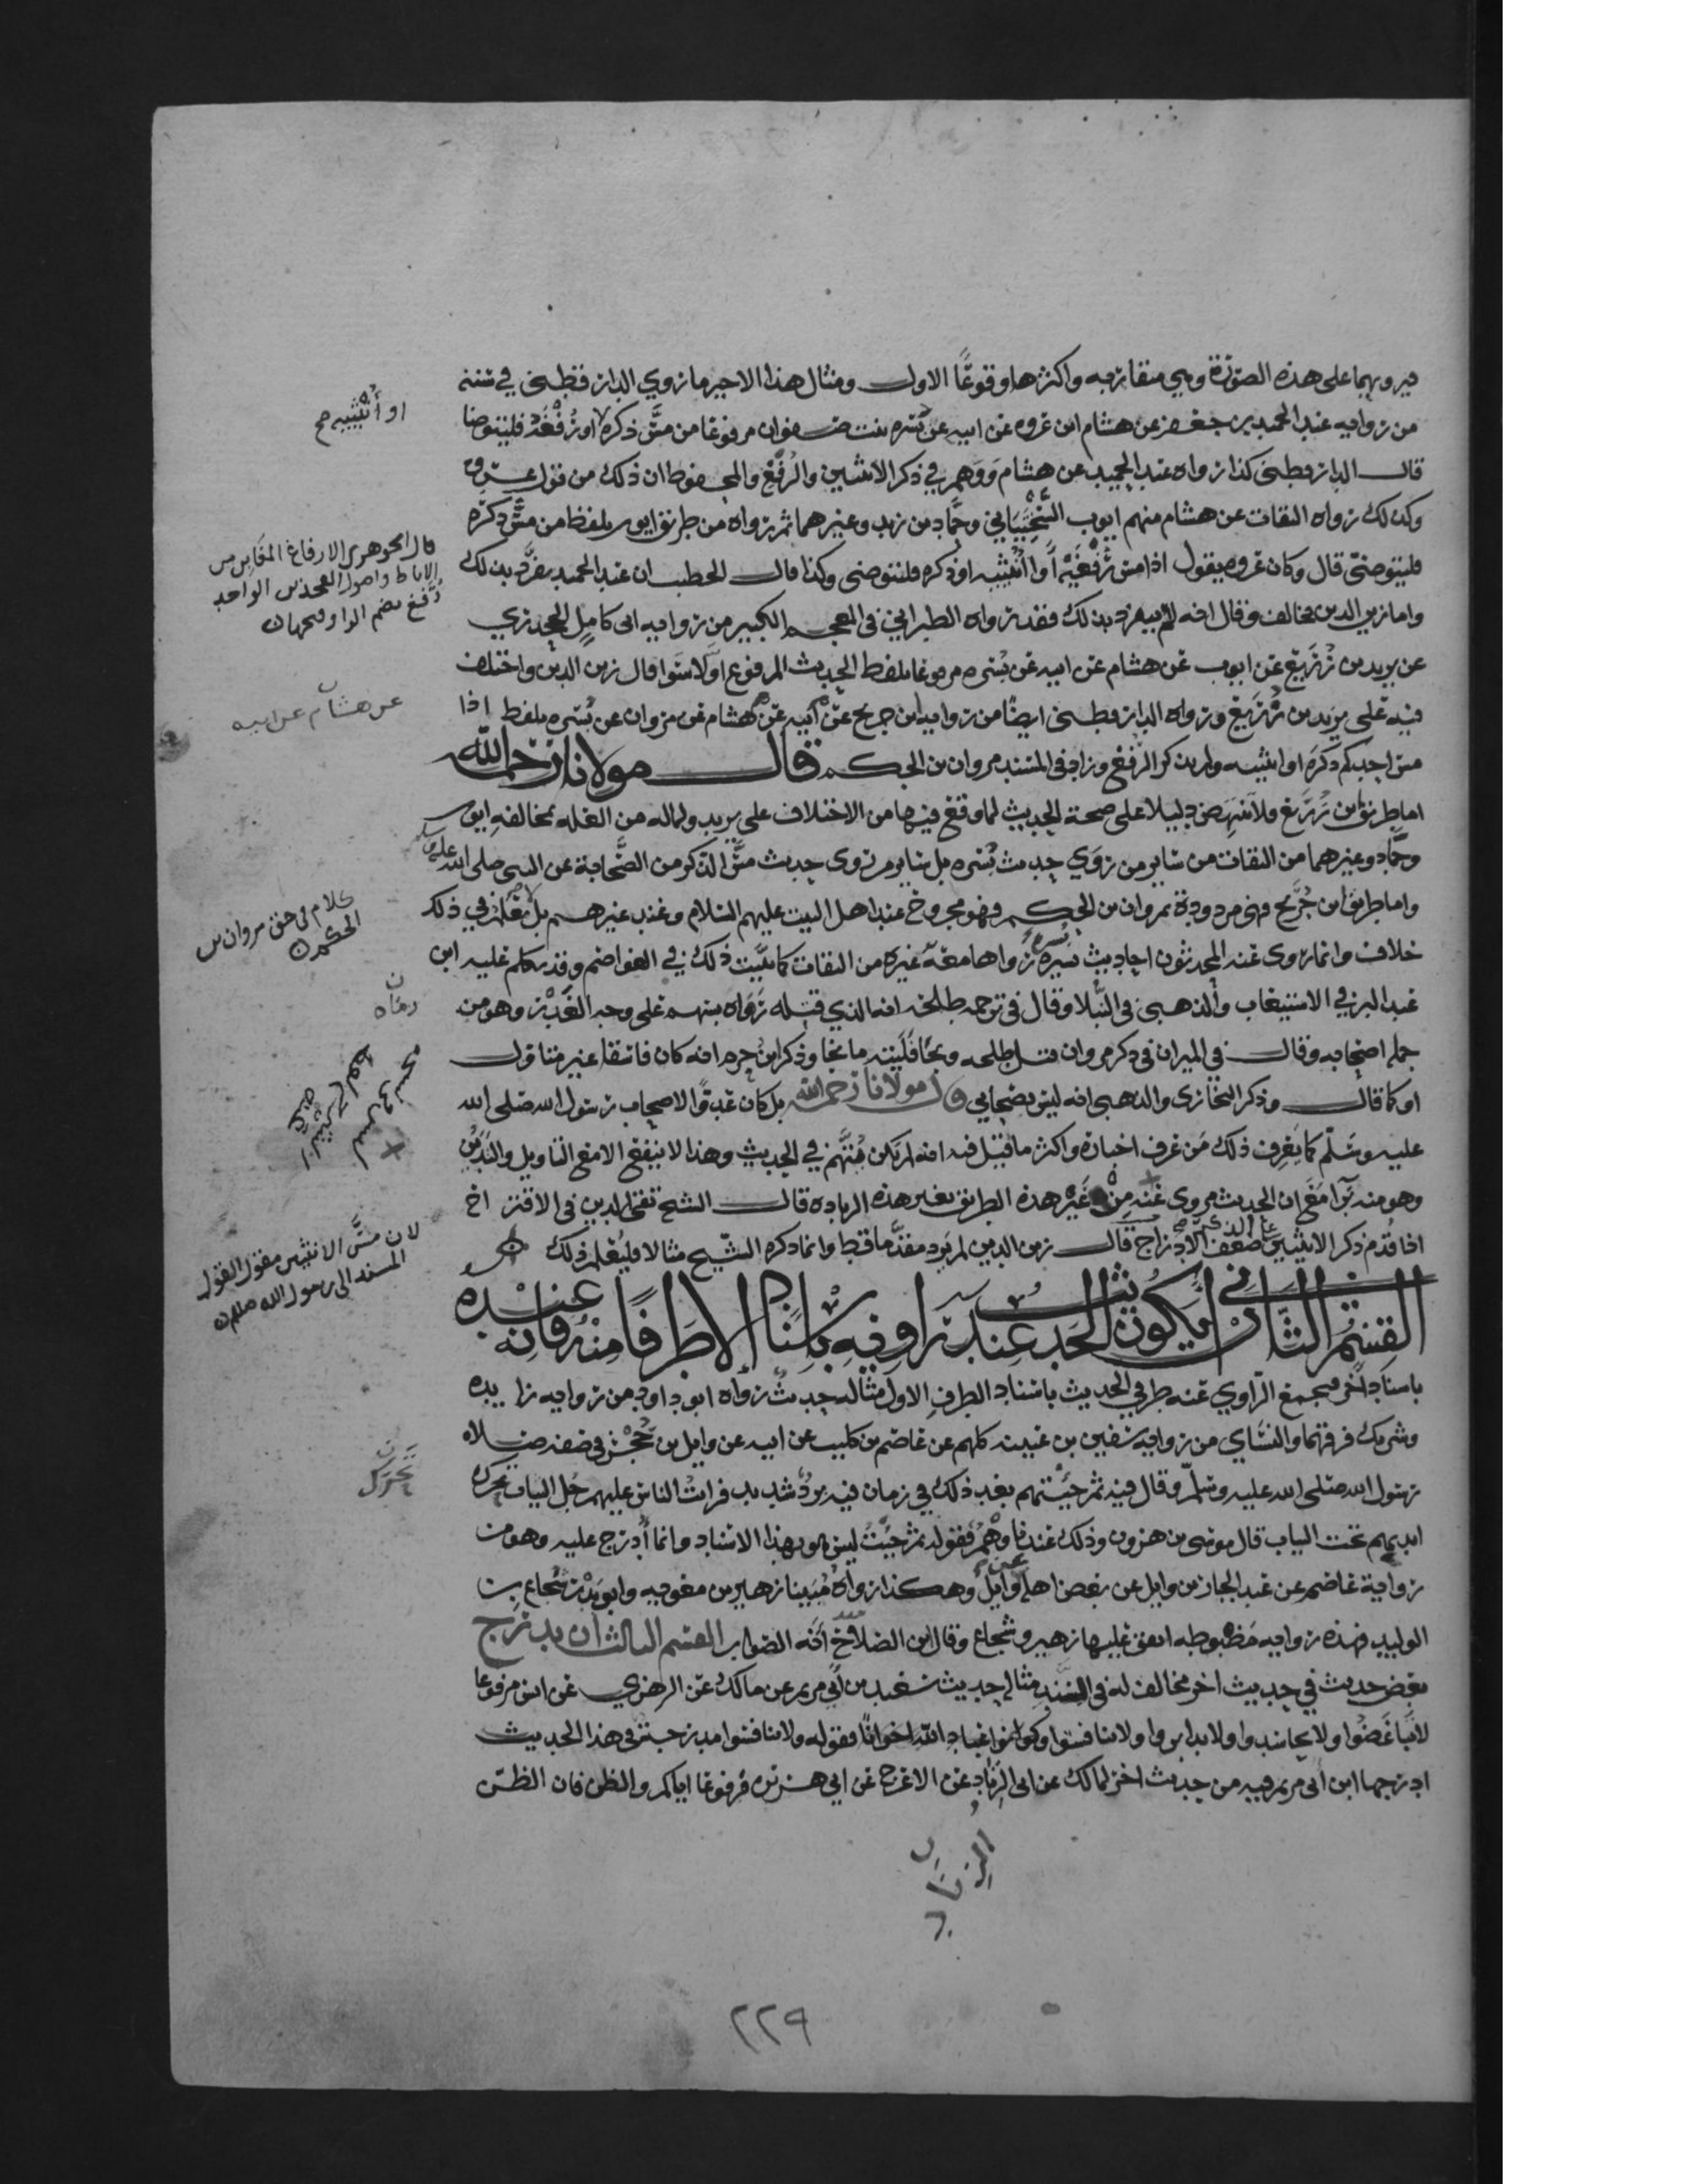 فيرويهما على هذه الصورة وهي متقاربه واكثرها وقوعًا الاول ومثال هذا الاخير ما روي الدارقطني في سننه
من روايه عبد الحميد بن جعفر عن هشام ابن عروه عن ابيه عن بسره بنت صفوان مرفوعا من مسّ ذكره او رُفْغَه فليتوضا
قال الدارقطني كذا رواه عبد الحميد عن هشام ووهم في ذكر الانثيين والرُّفغ والمحفوظ ان ذلك من قول عروة
وكذلك رواه الثقات عن هشام منهم ايوب السَّخْتِيَاني وحمّاد بن زيد وغيرهما ثم رواه من طريق ايوب بلفظ من مسّ ذكره
فليتوضىّ قال وكان عروه يقول اذا مس رُفْغَيْه أو انثييه او ذكره فليتوضى وكذا قال الخطيب ان عبد الحميد تفرَّد بذلك
واما زين الدين فخالف وقال انه لم ينفرد بذلك فقد رواه الطبراني في المعجم الكبير من روايه ابى كامل الجحدري
عن يزيد بن زُرَيع عن ايوب عن هشام عن ابيه عن بُسْره مرفوعا بلفظ الحديث المرفوع اولا سَوا قال زين الدين واختلف
فيه على يزيد بن زُرَيع ورواه الدارقطنى ايضًا من روايه ابن جريج عن هشام عن ابيه عن مروان عن بُسْره بلفظ اذا
مس احدكم ذكره او انثييه ولم يذكر الرُّفغ وزاد في السند مروان بن الحكم قال مولانا رحمه الله
اما طريق ابن زُرَيع فلا تنهض دليلا على صحة الحديث لما وقع فيها من الاختلاف على يزيد ولما له من العله بمخالفه ايوب
وحمّاد وغيرهما من الثقات من ساير من رَوَي حديث بُسْره بل ساير من روى حديث مسّ الذكر من الصَّحابة عن النبى صلى الله عليه وسلم
واما طريق ابن جُرَيج فهى مردودة بمروان بن الحكم فهو مجروح عند اهل البيت عليهم السلام وعند غيرهم بل لا نعلم في ذلك
خلاف وانما روى عنه المحدثون احاديث يسيره رواها معه غيره من الثقات كما بيّنت ذلك في العواصم وقد تكلم عليه ابن
عبد البر في الاستيعاب والذهبى في النُّبلا وقال في ترجمه طلحه انه الذي قتله رَمَاه بسهم على وجه الغَدْر وهو من
جمله اصحابه وقال في الميزان في ذكر مروان قتل طلحه ونجا فليته ما نجا وذكر ابن حزم انه كان فاسقا غير متاول
او كما قال وذكر البخاري والذهبى انه ليس بصحابي قال مولانا رحمه الله بل كان عدوًّا لاصحاب رسول الله صلى الله
عليه وسلّم كما يَعرف ذلك مَن عرف اخباره واكثر ما قيل فيه انه لم يكن مُتَّهم في الحديث وهذا لا ينفع الا مع التاويل والتَديُّن
وهو منه بَرَآ مَعَ ان الحديث مروى عنه مِنْ غَيْر هذه الطريق بغير هذه الزياده قال الشيخ تقى الدين في الاقتراح
اذا قُدِّم ذكر الانثيين على الذكر ضعف الادراج قال زين الدين لم يَرِد مقدَّما قط وانما ذكره الشيخ مثالا فليُعلم ذلك
القِسْمُ الثَّانِى ان يكون الحديث عند راويه باسناد الا طرَفًا منه فانه عنده
باسناد اخر فيجمع الرّاوي عنه طرفي الحديث باسناد الطرف الاول مثاله حديث رواه ابو داود من روايه زايده
وشريك فرقهما والنسَاي من روايه سفين بن عيينه كلهم عن عاصم بن كليب عن ابيه عن وايل بن حُجْر في صفه صلاه
رسول الله صلى الله عليه وسلّم وقال فيه ثم جئتهم بعد ذلك في زمان فيه بردٌ شديد فرايت الناس عليهم جُل الثياب تحرك
ايديهم تحت الثياب قال موسى بن هرون وذلك عندنا وَهْمٌ فقوله ثم جيت ليس هو بهذا الاسناد وانما أُدرج عليه وهو من
رواية عاصم عن عبد الجبار بن وايل عن بعض اهله عن وايل وهكذا رواه مُبَينا زهير بن معويه وابو بدر شجاع بن
الوليد فهذه روايه مضبوطه اتفق عليها زهير وشجاع وقال ابن الصلاح انه الصواب القسم الثالث ان يدرج
بعض حديث في حديث اخر مخالف له في السند مثاله حديث سعيد بن أبي مريم عن مالك عن الزهري عن انس مرفوعا
لا تباغَضُوا ولا تحاسدوا ولا تدابروا ولا تنافسوا وكونوا عباد الله اخوانًا فقوله ولا تنافسوا مدرجة في هذا الحديث
ادرجها ابن ابى مريم فيه من حديث اخر لمالك عن ابى الزناد عن الاعرج عن ابي هريره مرفوعا اياكم والظن فان الظن
او أُنْثييه صح
قال الجوهرى الارفاغ المغابن من
الاباط واصول الفخذين الواحد
رُفغ بضم الرا وفتحها ن
عن هشام عن ابيه
كلام في حق مروان بن
الحكم ن
رماه
لان مسَّ الانثيين مقول القول
المسند الى رسول الله صلعم ن
تحرك
الزناد
٢٢٩